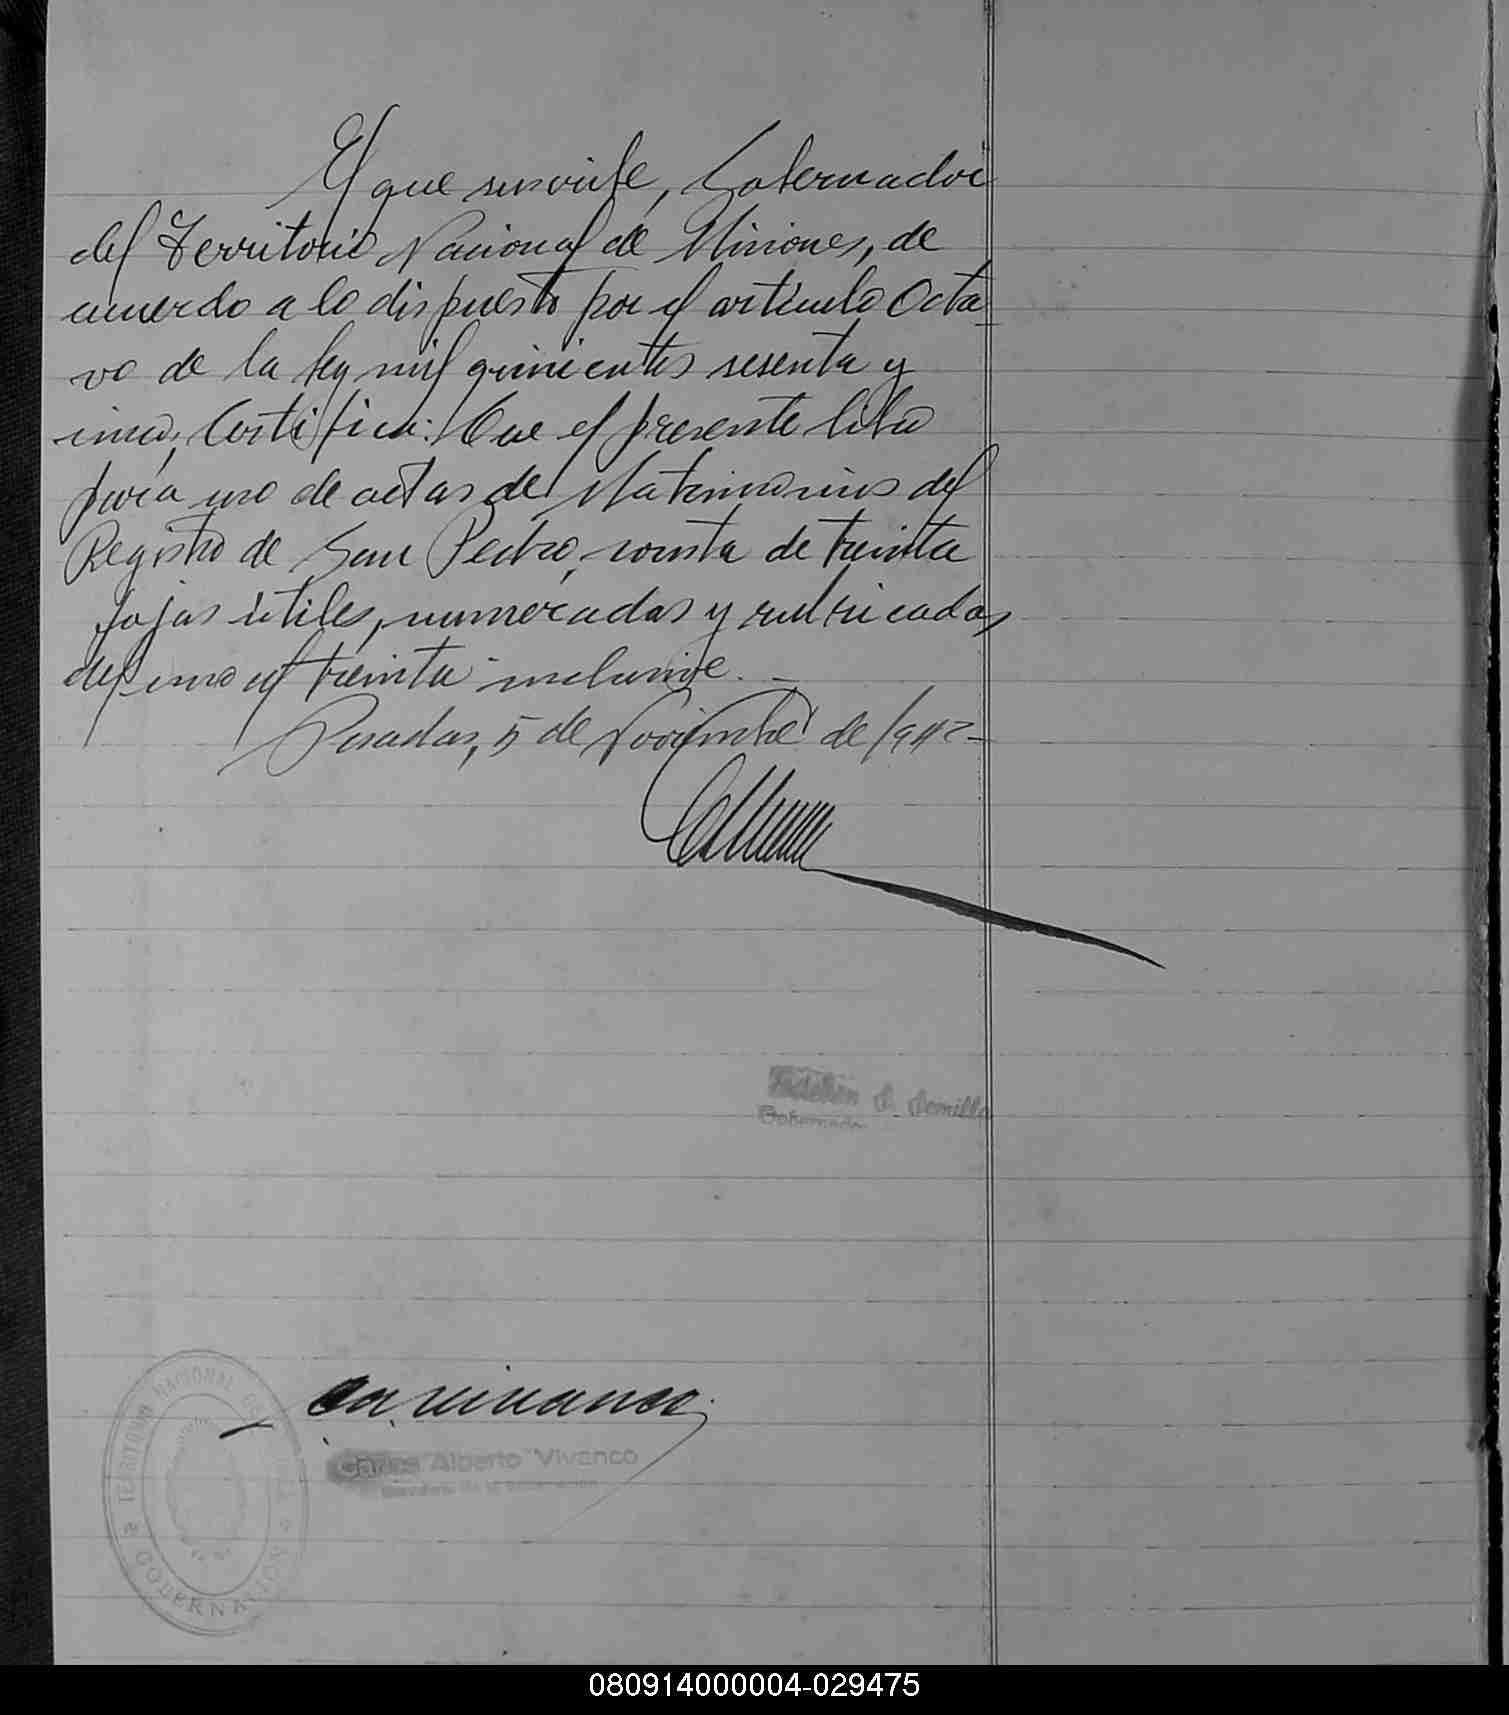 El que suscribe, Gobernador
del Territorio Nacional de Misiones, de
acuerdo a lo dispuesto por el artículo Octa-
vo de la ley mil quinientos sesenta y
cinco, Certifica: Que el presente libro
para uso de actas de Matrimonios del
Registro de San Pedro, consta de treinta
fojas útiles, numeradas y rubricadas
del uno al treinta inclusive. -
Posadas, 5 de Noviembre de 1912-
Gobernador
CA Vivanco
Carlos Alberto Vivanco
TERRITORIO NACIONAL DE MISIONES
GOBERNACION
080914000004-029475